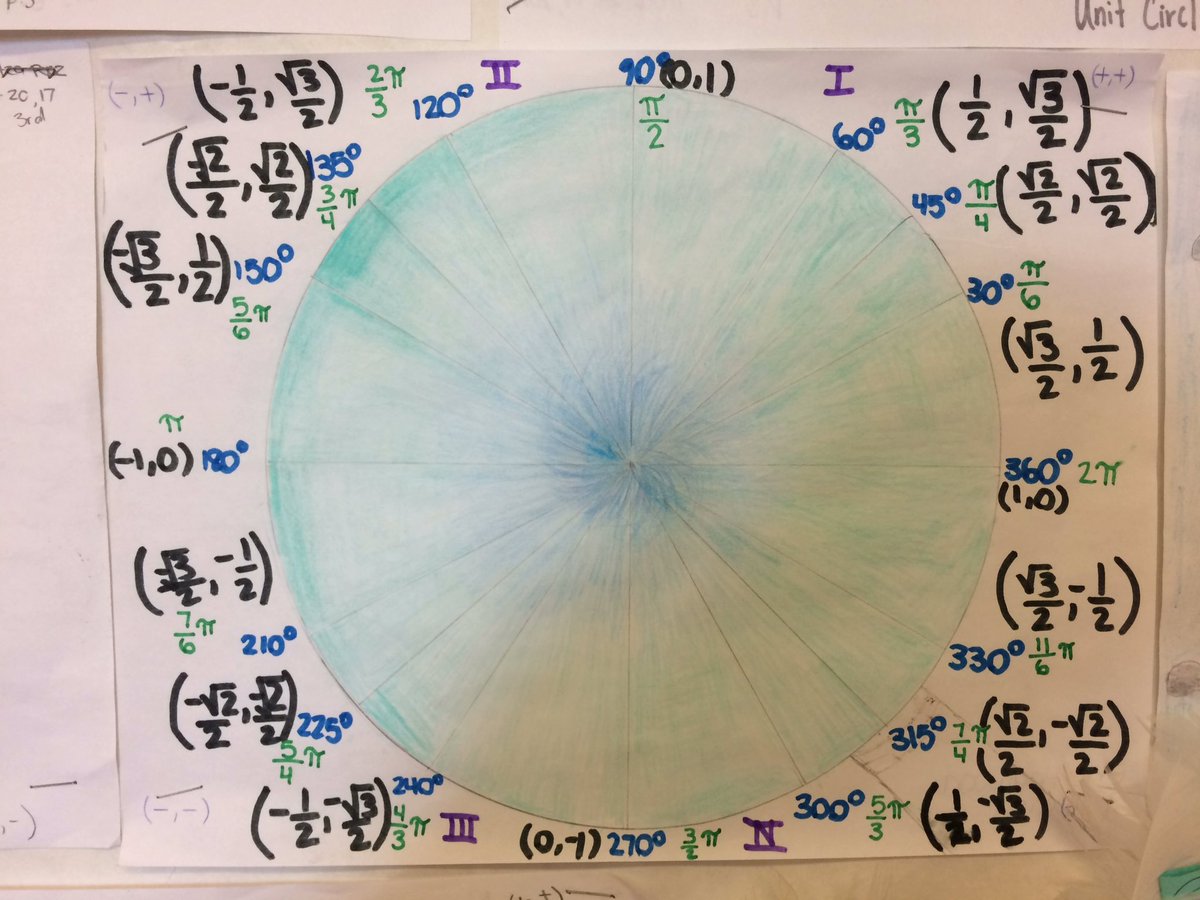 Unit Circl
20,17
3rd
(-,+)
(-1/2, √3/2) 2/3 π 120°
II
90° (0,1)
π/2
I
60° π/3 (1/2, √3/2)
(+,+)
(-√2/2, √2/2) 135° 3/4 π
45° π/4 (√2/2, √2/2)
(-√3/2, 1/2) 150° 5/6 π
30° π/6
(√3/2, 1/2)
π
(-1,0) 180°
360° 2π
(1,0)
(-√3/2, -1/2)
7/6 π 210°
(√3/2, -1/2)
330° 11/6 π
(-√2/2, -√2/2) 225°
5/4 π
315° 7/4 π (√2/2, -√2/2)
(-,-)
(-1/2, -√3/2) 240° 4/3 π
III
(0,-1) 270° 3/2 π
IV
300° 5/3 π (1/2, -√3/2)